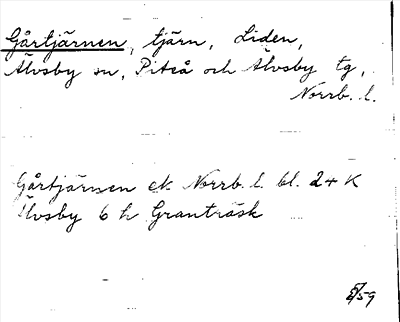 Gårtjärnen, tjärn, Liden,
Älvsby sn, Piteå och Älvsby tg,
Norrb. l.
Gårtjärnen ek. Norrb. l. bl. 24 K
Älvsby 6 h Granträsk
/59